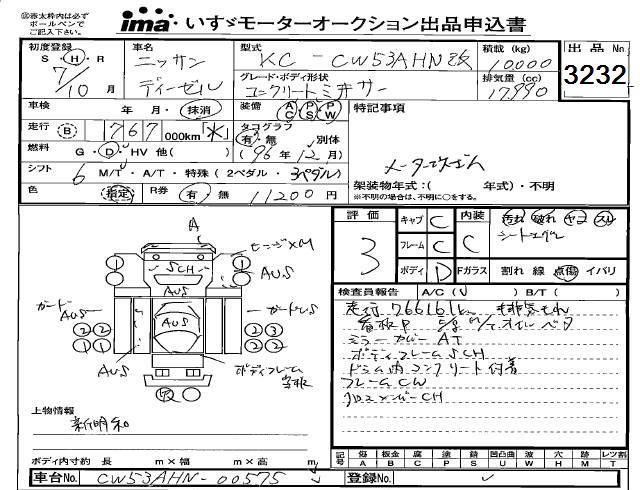 ㊟赤太枠内は必ず
ボールペンで
ご記入下さい。
ima いすゞモーターオークション出品申込書
初度登録 車名 型式 積載(kg) 出品No
S・H・R ニッサン KC-CW53AHN改 10,000
7/10月 ディーゼル グレード・ボディ形状 排気量(cc) 3232
コンクリートミキサー 17,990
車検 年 月・抹消 装備 AC PS PW 特記事項
走行 B 767 000km「水」 タコグラフ 有・無 別体
燃料 G・D・HV 他( ) (96年12月)
シフト 6 M/T・A/T・特殊(2ペダル・3ペダル) 架装物年式:( 年式)・不明
※不明の場合は、不明に○をする。
色 指定 R券 有・無 11200円
評価 キャブ C 内装 汚れ 破れ ヤコ スレ
3 フレーム C C
ボディ D Fガラス 割れ 線 点傷 イバリ
検査員報告 A/C( ) B/T( )
走行766161k
ミラーカバーAT
ボディフレームSCH
ドラム内コンクリート付着
フレームCW
クロスメンバーCH
A
SCH
AUS
AUS
ガード
AUS
AUS
ボディフレーム
上物情報
新明和
ボディ内寸約 長 m×幅 m×高 m
記号 傷A 板金B 腐C 塗P 錆S 凹凸曲U 波W 穴H 跡M レツ割T
車台No. CW53AHN-00575 登録No.